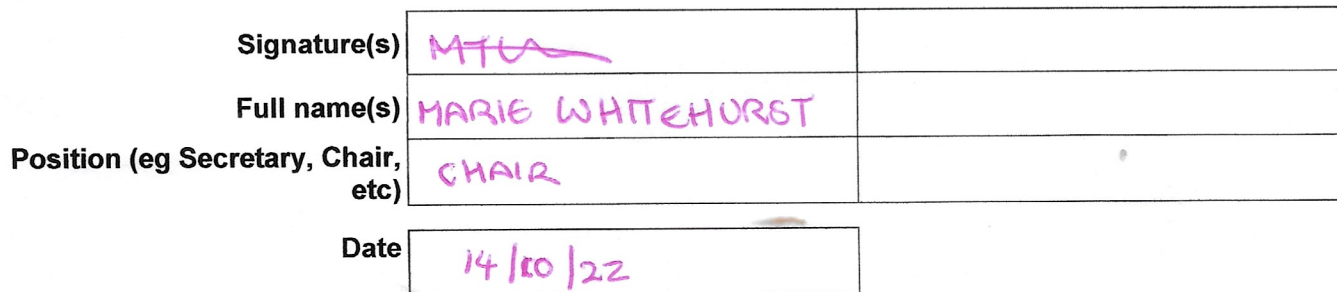 Signature(s)
Full name(s) MARIE WHITEHURST
Position (eg Secretary, Chair,
etc) CHAIR
Date 14/10/22